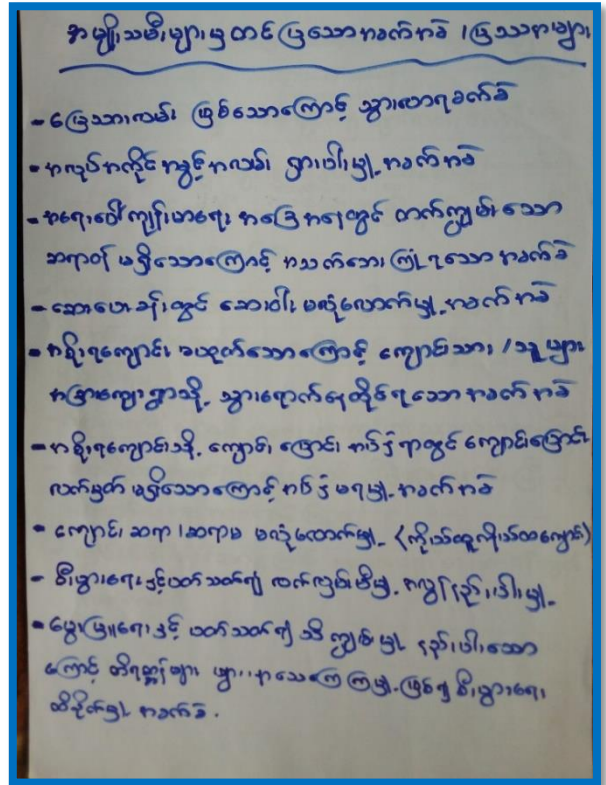 အမျိုးသမီးများမှတင်ပြသောအခက်အခဲ /ပြဿနာများ
- မြေသားလမ်း ဖြစ်သောကြောင့် သွားလာရခက်ခဲ
- အလုပ်အကိုင်အခွင့်အလမ်း ရှားပါးမှု့ အခက်အခဲ
- အရေးပေါ်ကျန်းမာရေး အခြေအနေတွင် တက်ကျွမ်းသော
ဆရာဝန် မရှိသောကြောင့် အသက်ဘေးကြုံရသောအခက်အခဲ
- ဆေးပေးခန်းတွင် ဆေးဝါး မလုံလောက်မှု့ အခက်အခဲ
- အစိုးရကျောင်း မယုတ်သောကြောင့် ကျောင်းသား /သူများ
အခြားကျေးရွာသို့ သွားရောက်နေထိုင်ရသောအခက်အခဲ
- အစိုးရကျောင်းသို့ ကျောင်းပြောင်း အပ်နှံရာတွင် ကျောင်းပြောင်း
လက်မှတ် မရှိသောကြောင့် အပ်နှံမရမှု့ အခက်အခဲ
- ကျောင်းဆရာ /ဆရာမ မလုံလောက်မှု့ (ကိုယ်ထူကိုယ်ထကျောင်း)
- စီးပွားရေးနှင့်ပတ်သတ်၍ လက်လှမ်းမီမှု့ နည်းပါးမှု့
- မွေးမြူရေးနှင့် ပတ်သတ်၍ သိကျွမ်းမှု့ နည်းပါးသော
ကြောင့် တိရစ္ဆာန်များ ဖျားနာသေကြေမှု့ဖြစ်၍ စီးပွားရေး
ထိခိုက်မှု့ အခက်ခဲ.